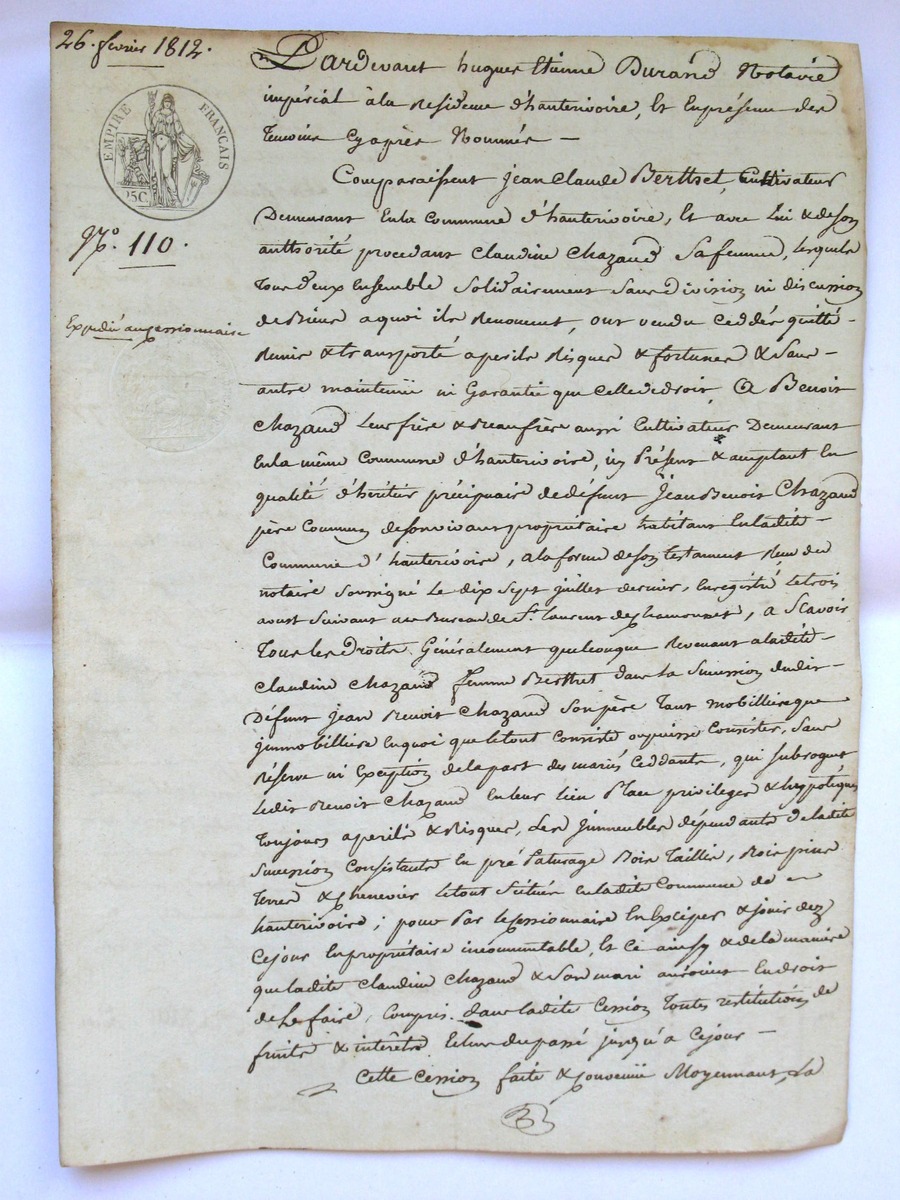 26. fevrier 1812.
EMPIRE FRANÇAIS
25C.
N.º 110.
Expedié au cessionnaire
Pardevant hugues Etienne Durand Notaire
impérial à la Residence d'hauterivoire, Et En présence des
Temoins Cyaprès Nommés —
Comparaissent Jean Claude Berthet, Cultivateur
Demeurant En la Commune d'hauterivoire, Et avec Lui & de son
authorité procedant Claudine Chazaud Sa femme, lesquels
Tous d'eux Ensemble Solidairement Sans Division ni discussion
de Biens a quoi ils Renoncent, ont vendu Ceddés quitté-
Remis & transporté a perils Risques & fortunes & Sans-
autre maintenue ni Garantie que Celle de droit, a Benoit
Chazaud Leur frère & Beaufrère aussi Cultivateur Demeurant
En la même Commune d'hauterivoire, icy Présent & acceptant En
qualité d'héritier précipuaire de defunt Jean Benoit Chazaud
père Commun de son vivant propriétaire habitant En ladite-
Commune d'hauterivoire, a la forme de son testament Reçu du
notaire Soussigné Le dix Sept juillet dernier, Enregistré Le trois
aoust Suivant au Bureau de St. Laurent de Chamousset, a Scavoir
Tous les Droits Généralement quelconque Revenant a ladite-
Claudine Chazaud femme Berthet dans la Succession dudit-
Défunt Jean Benoit Chazaud Son père Tant mobilliers que
jmmobilliers En quoi que le tout Consiste ou puisse Consister, Sans
Réserve ni Exception de la part des mariés Ceddants, qui subrogent
Ledit Benoit Chazaud En leur Lieu Place privileges & hypotèques
Toujours a perils & Risques, Les Jmmeubles dépendants de ladite
Succession Consistants En pré Paturage Bois Taillis, Bois pins
Terres & Chenevier le tout Scitués En ladite Commune de —
hauterivoire; pour Par le Cessionnaire En Exciper & jouir dez
Cejour En propriétaire incommutable, Et Ce ainsy & de la manière
que ladite Claudine Chazaud & Son mari auroient En droit
de Le faire, Compris dans ladite Cession Toutes restitutions de
fruits & intérêts Echus du passé jusqu'a Cejour —
Cette Cession faite & Convenue Moyennant, La